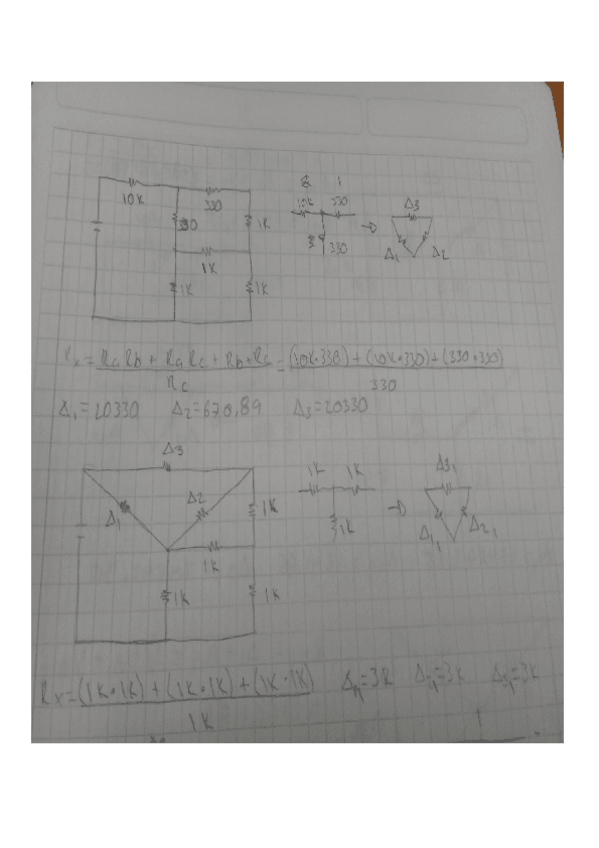 10K 330 330 1K 1K 1K 1K
10K 330 330 → Δ3 Δ1 Δ2
= RaRb + RaRc + Rb·Rc = (10K·330) + (10K·330) + (330·330)
Rc 330
Δ1=20330 Δ2=670,89 Δ3=20330
Δ3
Δ1 Δ2 1K 1K 1K 1K
1K 1K 1K → Δ31 Δ11 Δ21
Rx=(1K·1K) + (1K·1K) + (1K·1K) =3K =3K =3K
1K